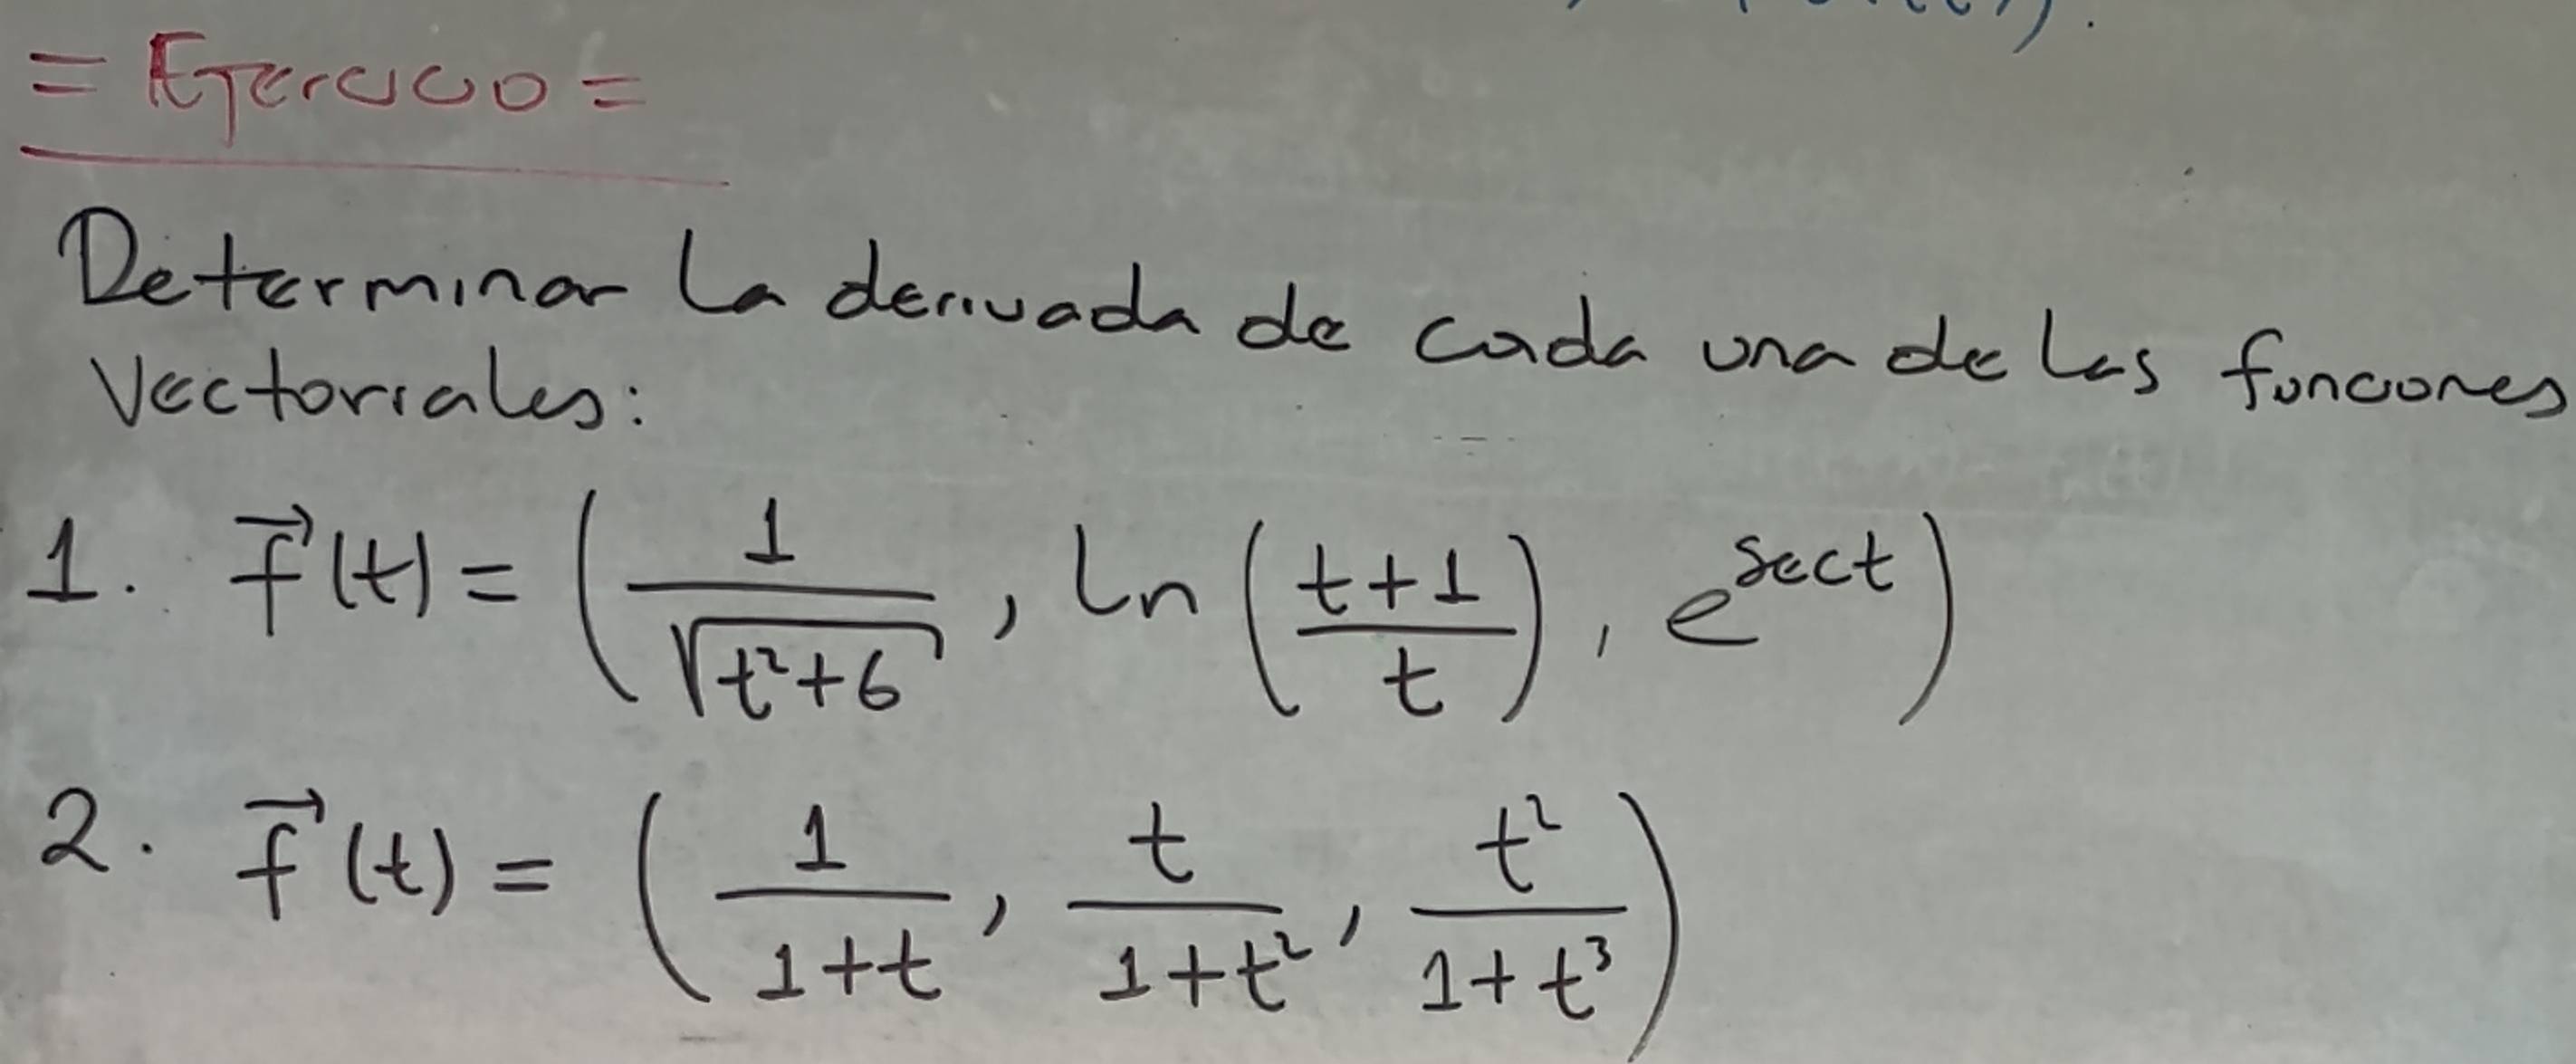 = Ejercicio =
Determinar la derivada de cada una de las funciones
Vectoriales:
1. f⃗(t) = ( 1/√(t²+6) , ln((t+1)/t) , e^(sect) )
2. f⃗(t) = ( 1/(1+t) , t/(1+t²) , t²/(1+t³) )